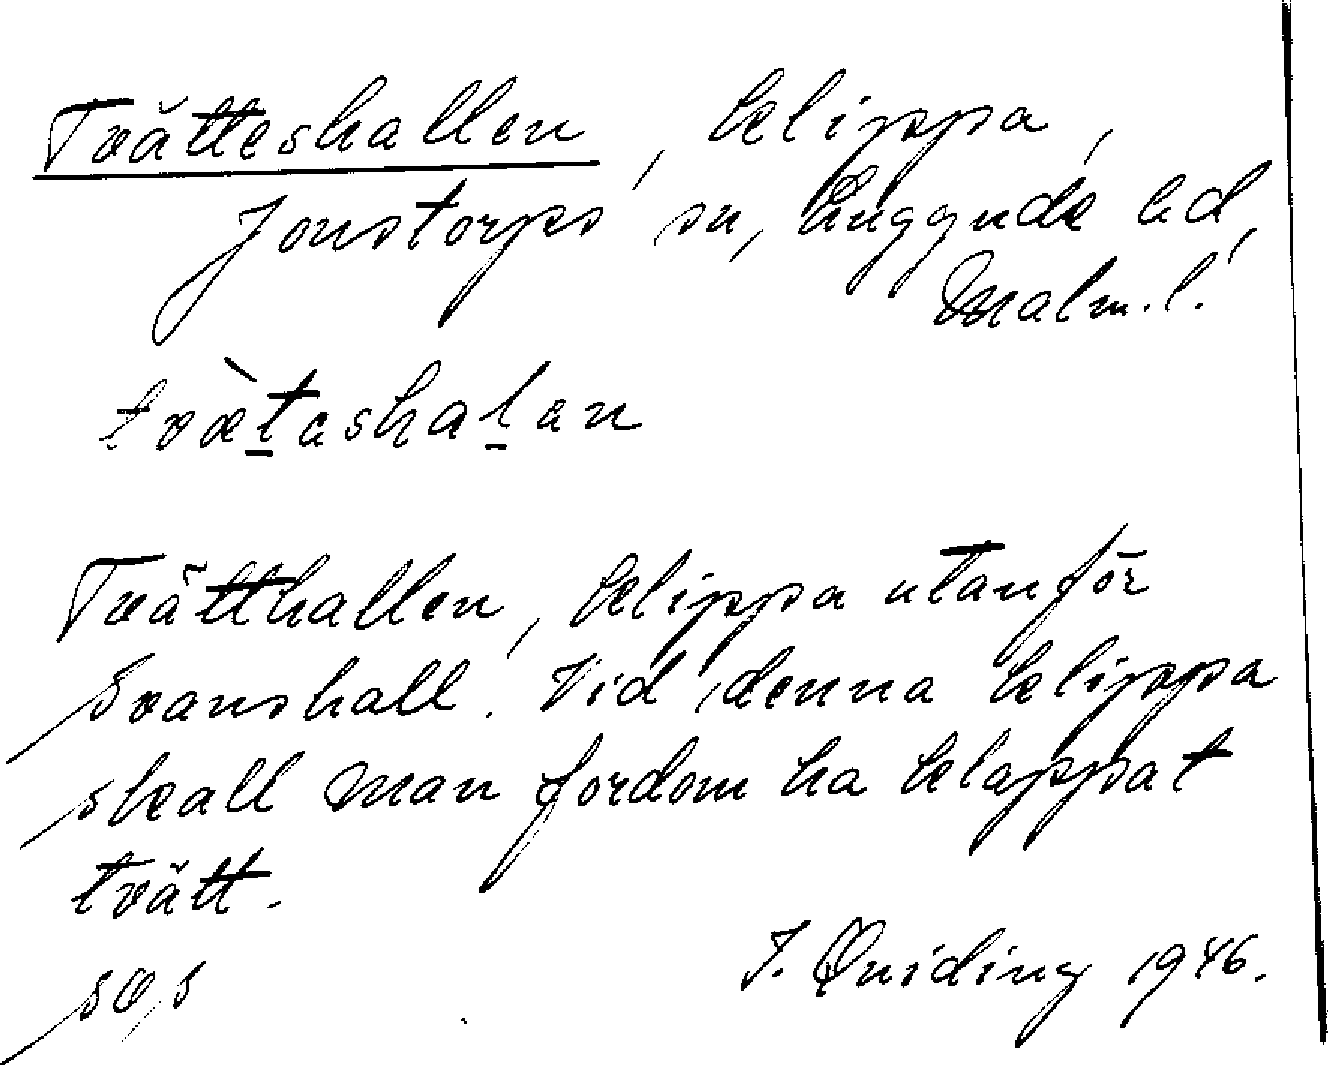 Tvätteshallen, klippa,
Jonstorps sn, Luggude hd,
Malm. l.
tvæ̀tashalan
Tvätthallen, klippa utanför
Svanshall. Vid denna klippa
skall man fordom ha klappat
tvätt.
I. Quiding 1946.